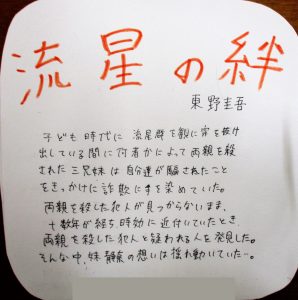 流星の絆
東野圭吾
子ども時代に流星群を観に家を抜け
出している間に何者かによって両親を殺
された三兄妹は自分達が騙されたこと
をきっかけに詐欺に手を染めていた。
両親を殺した犯人が見つからないまま、
十数年が経ち時効に近付いていたとき
両親を殺した犯人と疑われる人を発見した。
そんな中、妹静奈の想いは揺れ動いていた…。